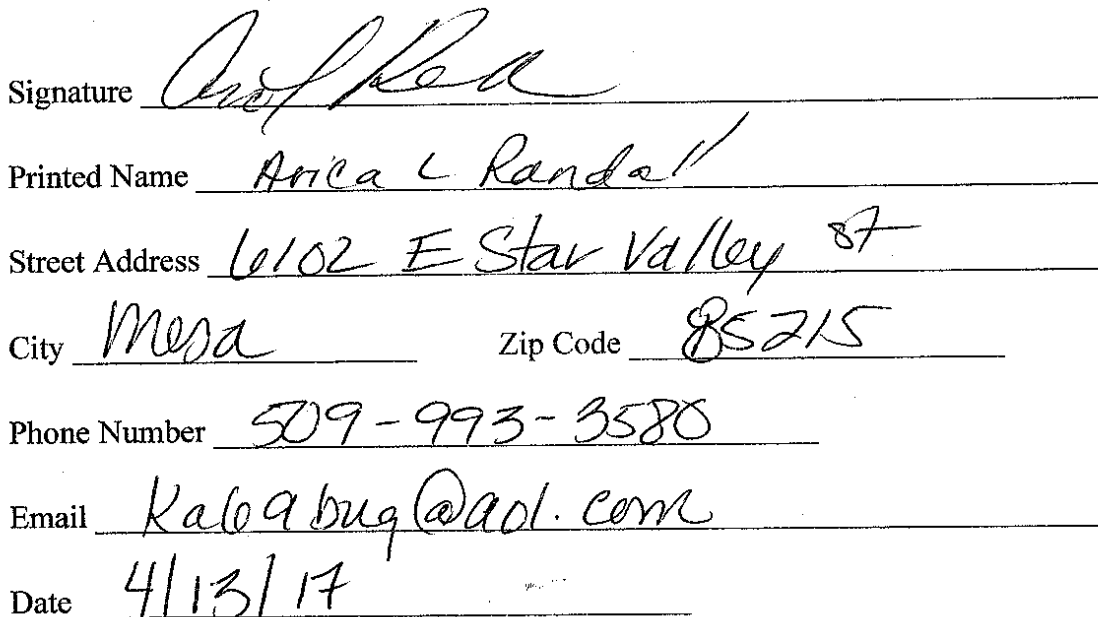 Signature
Printed Name Arica L Randall
Street Address 6102 E Star Valley St
City Mesa Zip Code 85215
Phone Number 509-993-3580
Email @aol.com
Date 4/13/17